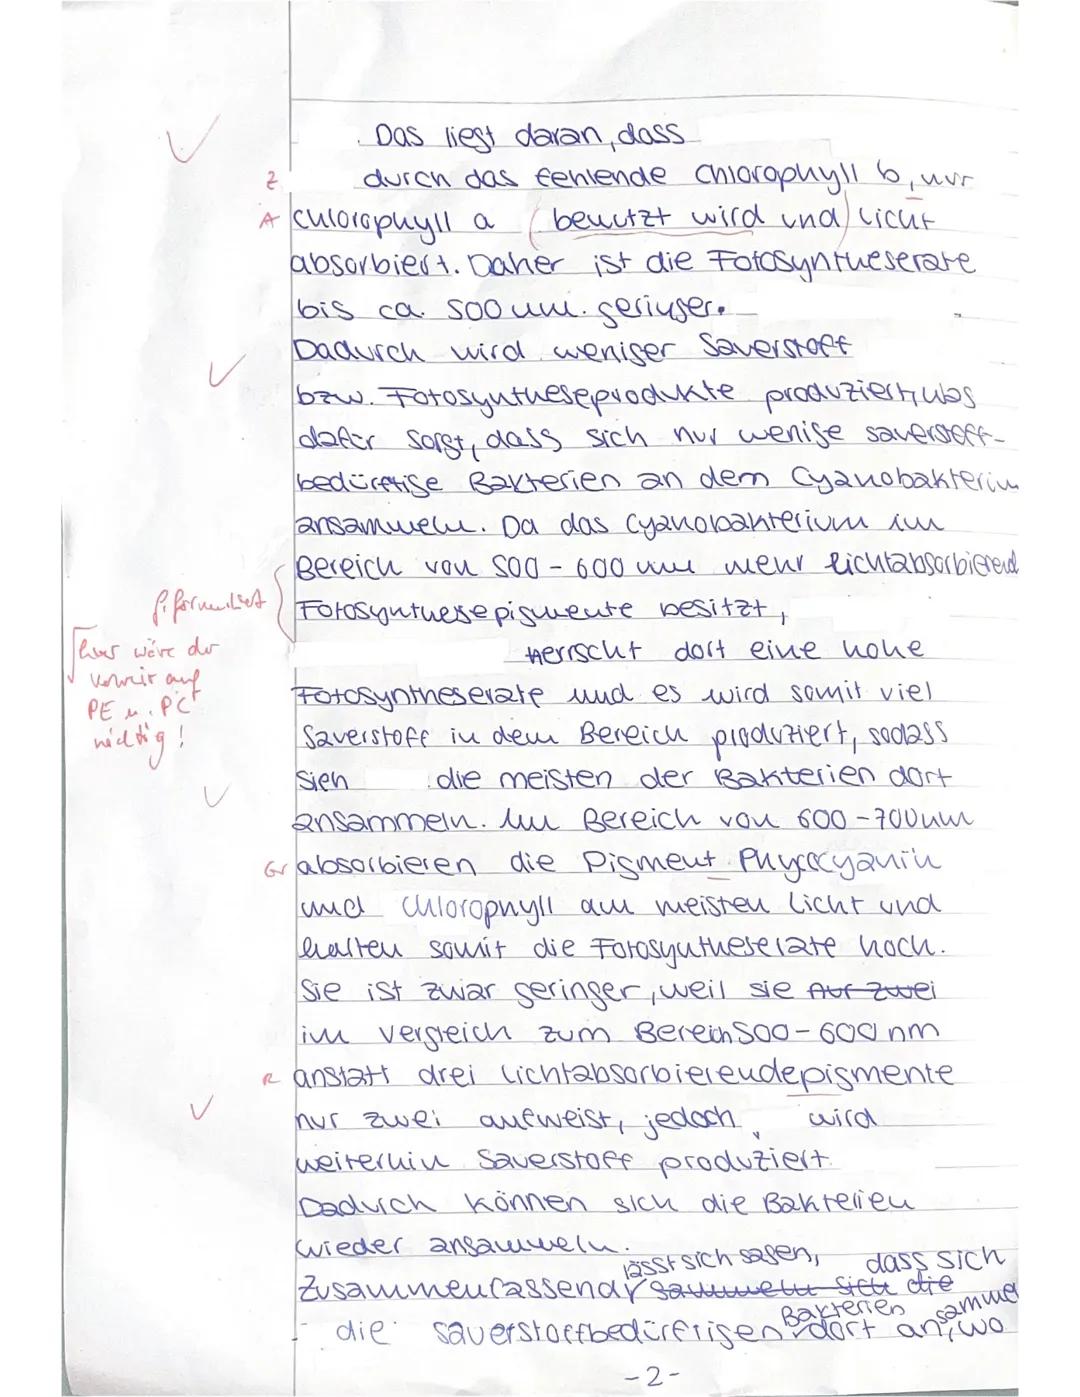 Das liegt daran, dass
Z durch das fehlende Chlorophyll b, nur
A Chlorophyll a (benutzt wird und) Licht
absorbiert. Daher ist die Fotosyntheserate
bis ca. 500 nm. geringer.
Dadurch wird weniger Sauerstoff
bzw. Fotosyntheseprodukte produziert, was
dafür sorgt, dass sich nur wenige sauerstoff-
bedürftige Bakterien an dem Cyanobakterium
ansammeln. Da das Cyanobakterium im
Bereich von 500-600 nm mehr lichtabsorbierend
Fotosynthesepigmente besitzt,
herrscht dort eine hohe
Fotosyntheserate und es wird somit viel
Sauerstoff in dem Bereich produziert, sodass
sich die meisten der Bakterien dort
ansammeln. Im Bereich von 600-700nm
Gr absorbieren die Pigment Phycocyanin
und Chlorophyll am meisten Licht und
halten somit die Fotosyntheserate hoch.
Sie ist zwar geringer, weil sie Auf zwei
im Vergleich zum Bereich 500-600 nm
R anstatt drei lichtabsorbierendepigmente
nur zwei aufweist, jedoch wird
weiterhin Sauerstoff produziert.
Dadurch können sich die Bakterien
wieder ansammeln.
lässt sich sagen, dass sich
Zusammenfassend sammeln sich die
Bakterien samme
die sauerstoffbedürftigen dort an, wo
-2-
formuliert
hier wäre der
Verweis auf
PE u. PC
wichtig!